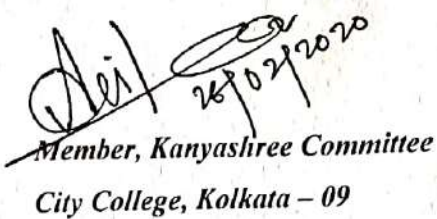 26/02/2020
Member, Kanyashree Committee
City College, Kolkata – 09